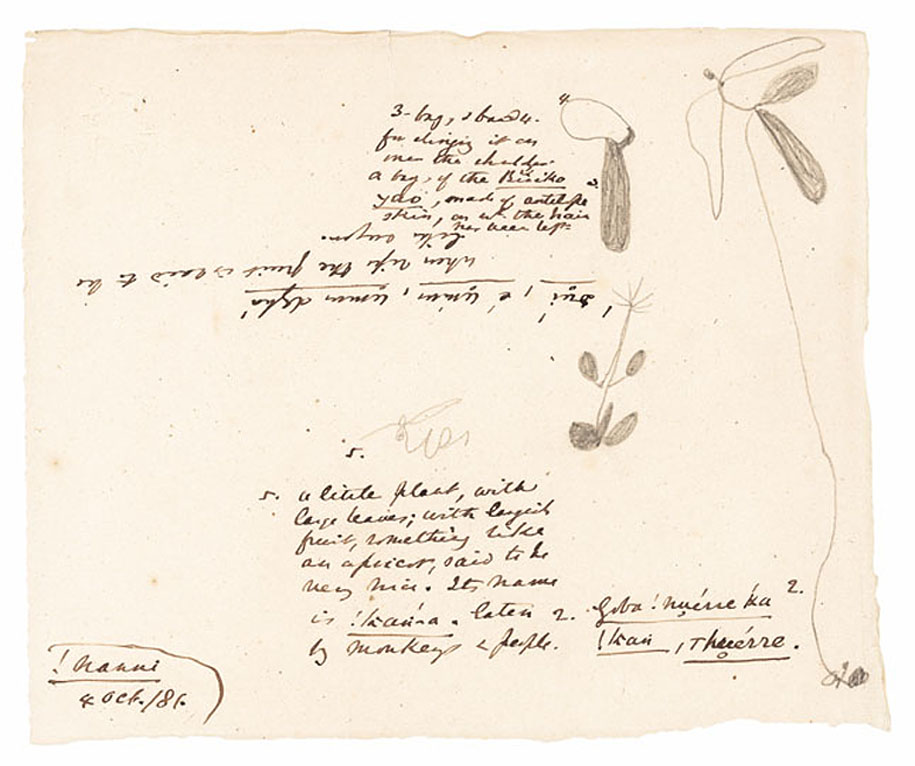 4
3- bag, & bands.
for slinging it on
over the shoulder
a bag, of the Bŭsiko
yao, made of antelope
skin, on wh. the hair
has been left.
3.
like sugar.
when ripe the fruit is said to be
5.
5. a little plant, with
large leaves; with largish
fruit, something like
an apricot, said to be
very nice. Its name
is !kaṅ-a. Eaten
by monkeys & people.
2. Goba !nu̱érre ka 2.
!kan, Thu̱érre.
!nanni
4 Oct./81.